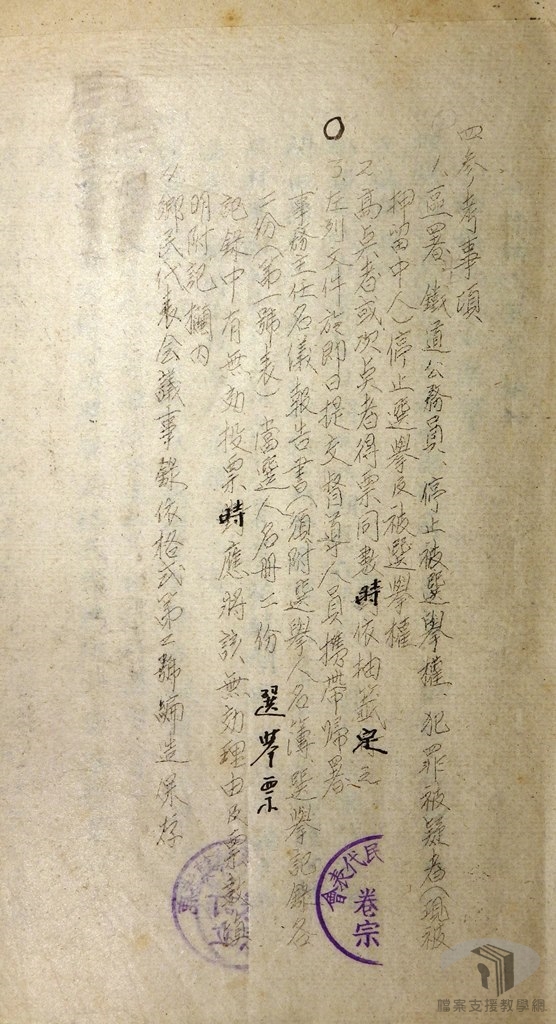 四、參考事項
1、區署、鐵道公務員、停止被選舉權、犯罪被疑者(現被
押留中人)停止選舉及被選舉權
2、高点者或次点者得票同數時依抽籤定之
3、左列文件於即日提交督導人員攜帶歸署
事務主任名儀報告書(須附選舉人名簿、選舉記錄各
二份(第一號表)當選人名冊二份 選举票
記錄中有無効投票時應將該無効理由及票數填
明附記欄內
4、鄉民代表會議事錄依格式第二號編造保存
民代表會
卷宗
檔案支援教學網